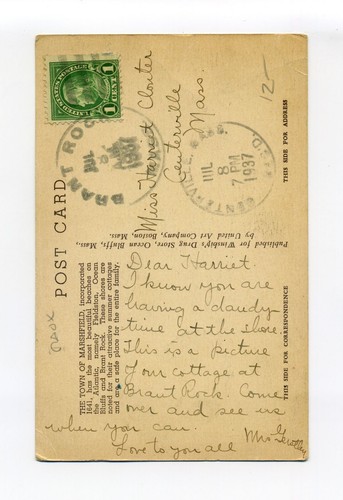 UNITED STATES POSTAGE
1 CENT 1
BRANT ROCK
JUL
1937
CENTERVILLE
JUL
8
7 PM
1937
REC'D.
12-
Miss Harriet Clouter
Centerville
Mass.
THIS SIDE FOR ADDRESS
POST CARD
Published for Winship's Drug Store, Ocean Bluffs, Mass.
by United Art Company, Boston, Mass.
THE TOWN OF MARSHFIELD, incorporated
1641, has the most beautiful beaches on
the Atlantic, namely Fieldston, Ocean
Bluffs and Brant Rock. These shores are
noted for their attractive summer cottages
and are a safe place for the entire family.
THIS SIDE FOR CORRESPONDENCE
Dear Harriet
I know you are
having a dandy
time at the shore.
This is a picture
of our cottage at
Brant Rock. Come
over and see us
when you can.
Love to you all
Mrs